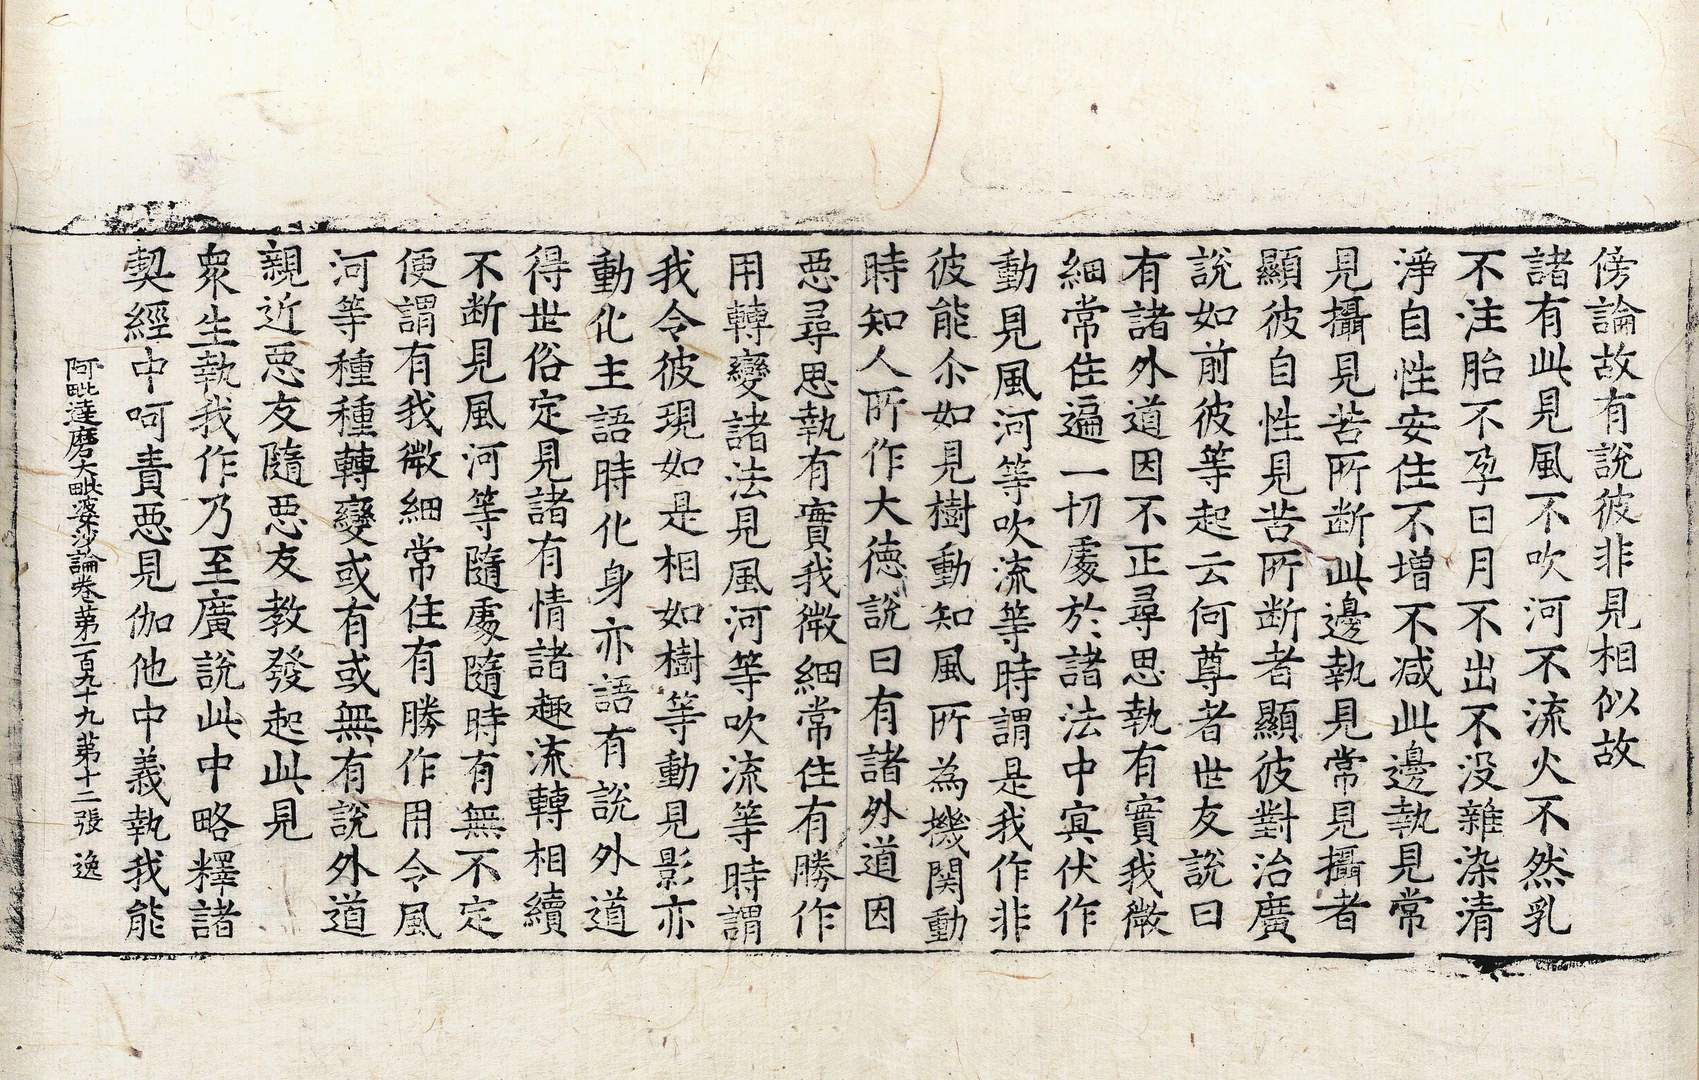 傍論故有說彼非見相似故
諸有此見風不吹河不流火不然乳
不注胎不孕日月不出不没雜染清
淨自性安住不增不減此邊執見常
見攝見苦所斷此邊執見常見攝者
顯彼自性見苦所斷者顯彼對治廣
說如前彼等起云何尊者世友說曰
有諸外道因不正尋思執有實我微
細常住遍一切處於諸法中冥伏作
動見風河等吹流等時謂是我作非
彼能尒如見樹動知風所為機関動
時知人所作大德說曰有諸外道因
惡尋思執有實我微細常住有勝作
用轉變諸法見風河等吹流等時謂
我令彼現如是相如樹等動見影亦
動化主語時化身亦語有說外道
得世俗定見諸有情諸趣流轉相續
不斷見風河等隨處隨時有無不定
便謂有我微細常住有勝作用令風
河等種種轉變或有或無有說外道
親近惡友隨惡友教發起此見
衆生執我作乃至廣說此中略釋諸
契經中呵責惡見伽他中義執我能
阿毗達磨大毗婆沙論卷苐一百九十九苐十二張 逸